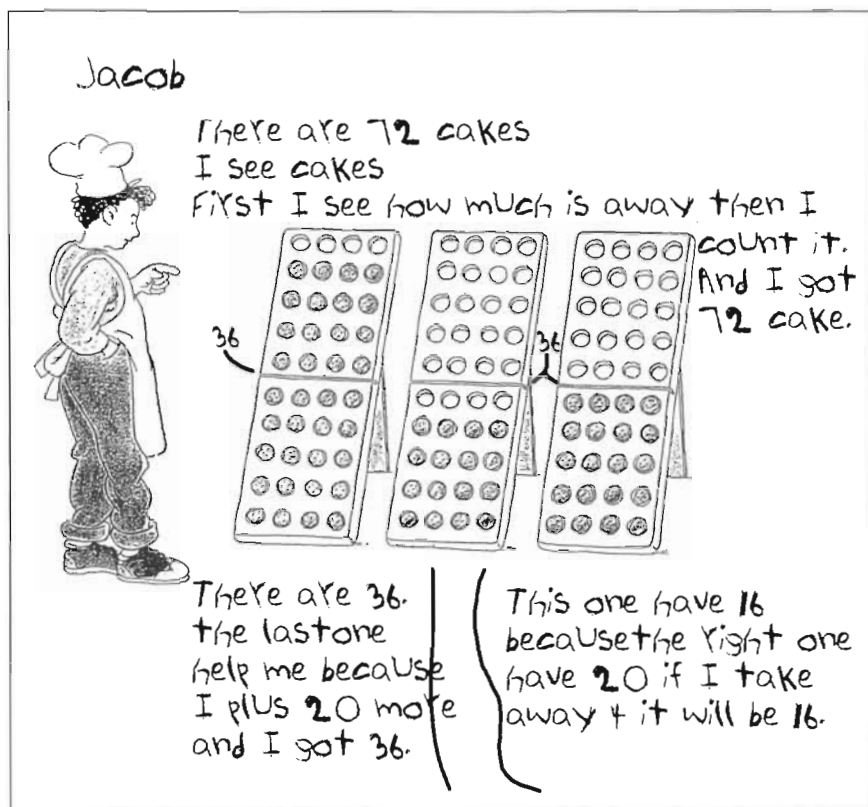 Jacob
There are 72 cakes
I see cakes
First I see how much is away then I
count it.
And I got
72 cake.
36
36
There are 36.
the lastone
help me because
I plus 20 more
and I got 36.
This one have 16
becausethe right one
have 20 if I take
away 4 it will be 16.